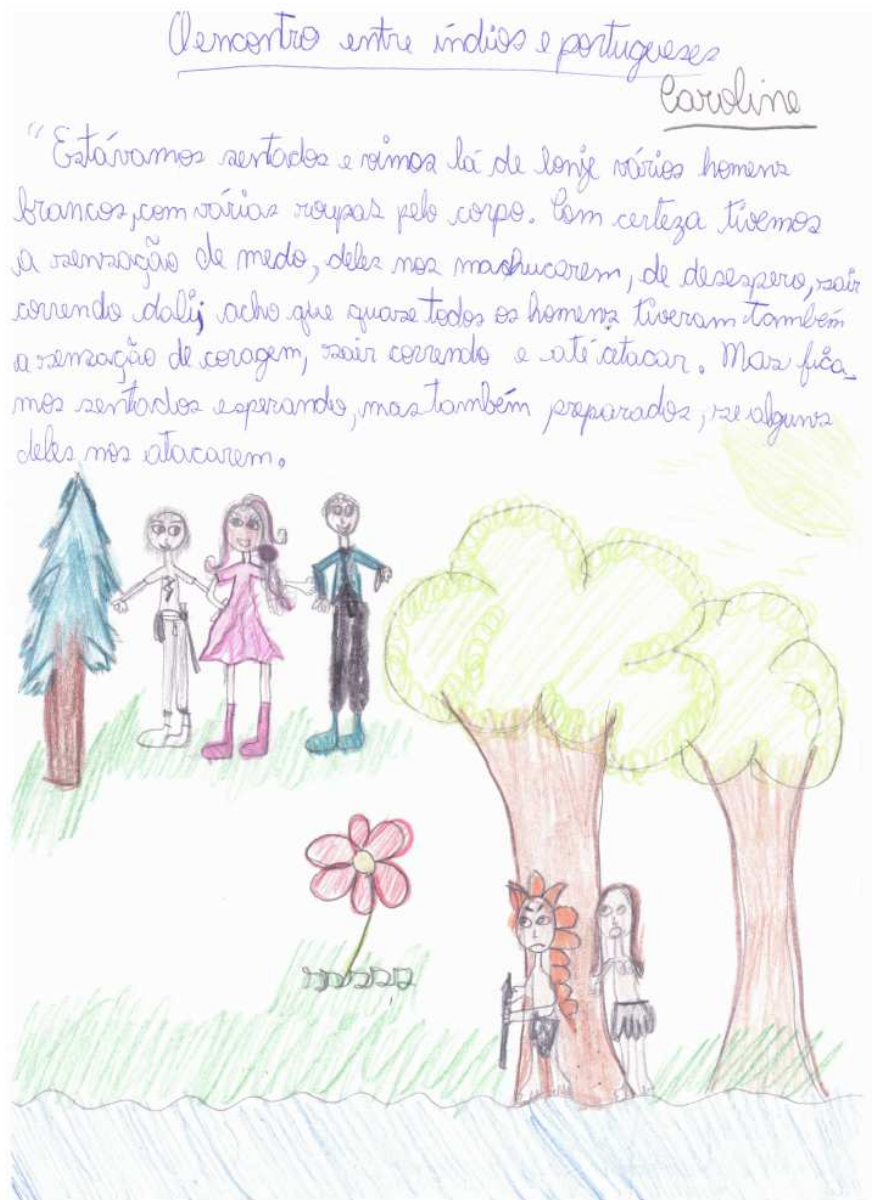 O encontro entre índios e portugueses
Caroline
"Estávamos sentados e vimos lá de lonje vários homens
brancos, com várias roupas pelo corpo. Com certeza tivemos
a sensação de medo, deles nos machucarem, de desespero, sair
correndo dali; acho que quase todos os homens tiveram também
a sensação de coragem, sair correndo e até atacar. Mas fica-
mos sentados esperando, mas também preparados, se alguns
deles nos atacarem.